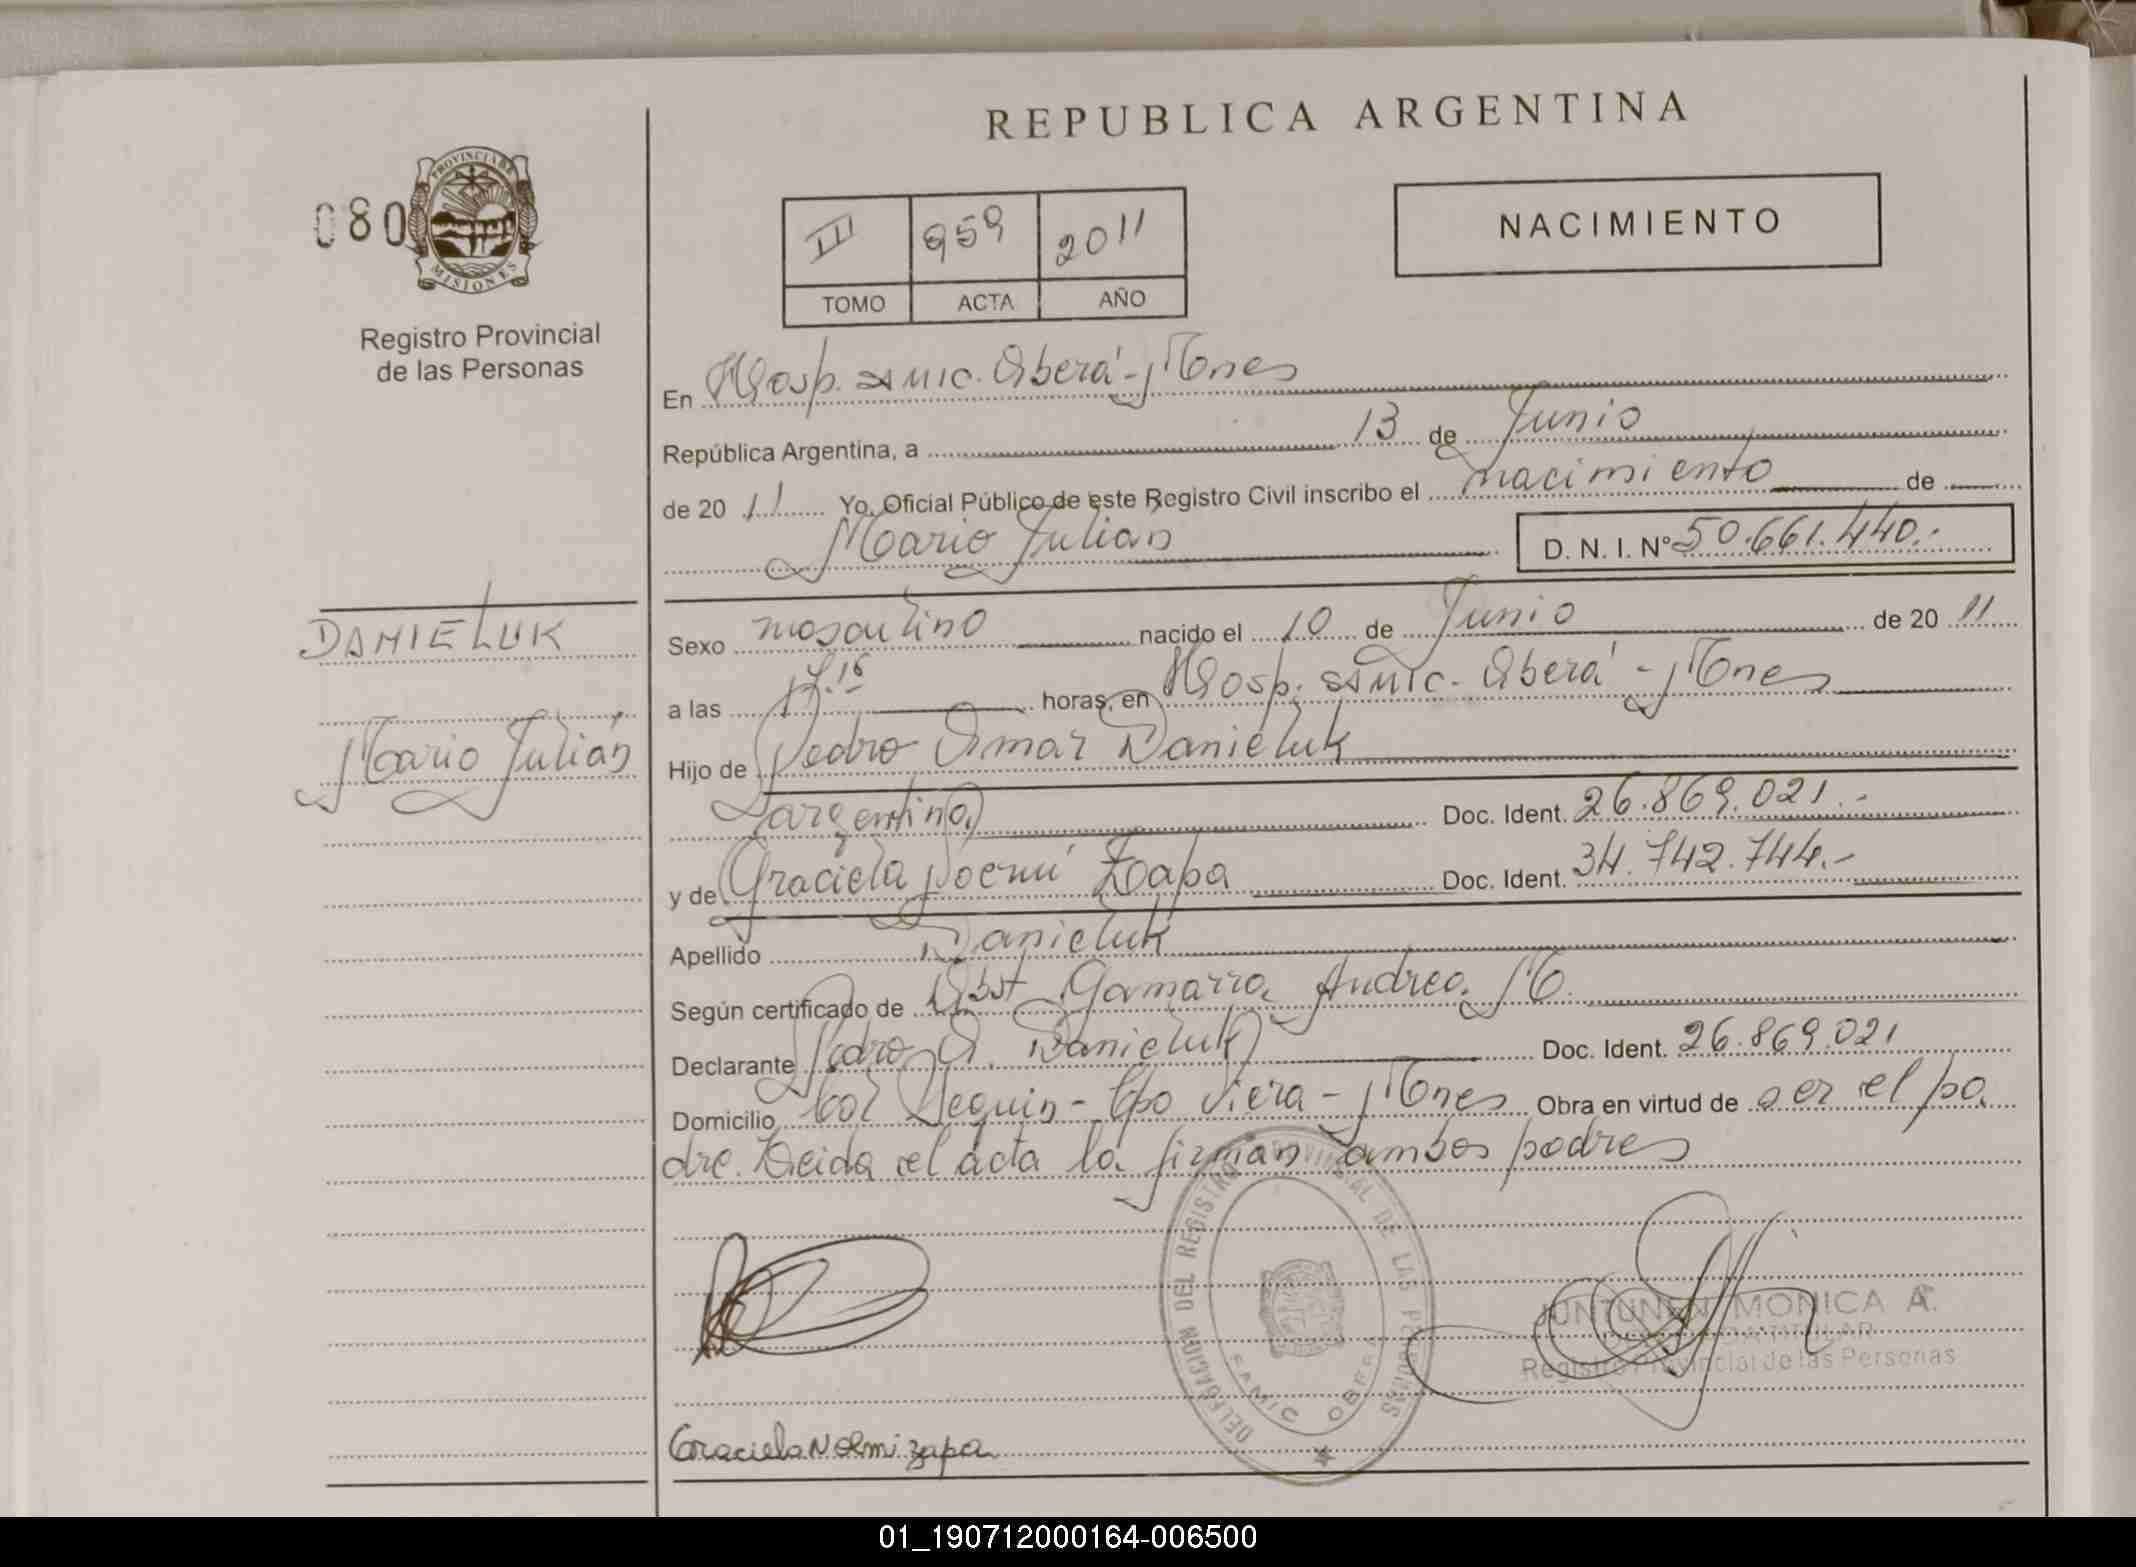 REPUBLICA ARGENTINA
080
PROVINCIA DE MISIONES
Registro Provincial
de las Personas
III 959 2011
TOMO ACTA AÑO
NACIMIENTO
En Hosp. SAMIC. Oberá - Mnes
República Argentina, a 13 de Junio
de 20 11 Yo, Oficial Público de este Registro Civil inscribo el nacimiento de
Mario Julián D. N. I. N° 50.661.440.-
DANIELUK
Mario Julián
Sexo masculino nacido el 10 de Junio de 20 11
a las horas, en Hosp. SAMIC. Oberá - Mnes
Hijo de Pedro Omar Danieluk
(argentino) Doc. Ident. 26.869.021.-
y de Graciela Noemí Zapa Doc. Ident. 34.742.744.-
Apellido Danieluk
Según certificado de Obst Gamarra Andrea M.
Declarante Pedro O. Danieluk Doc. Ident. 26.869.021
Domicilio Col Seguin - Cpo Viera - Mnes Obra en virtud de ser el pa
dre. Leida el acta la firman ambos padres
DELEGACION DEL REGISTRO PROVINCIAL DE LAS PERSONAS
SAMIC OBERA
JUNTUNEN MONICA A.
Registro Provincial de las Personas
Graciela Noemi zapa
01_190712000164-006500